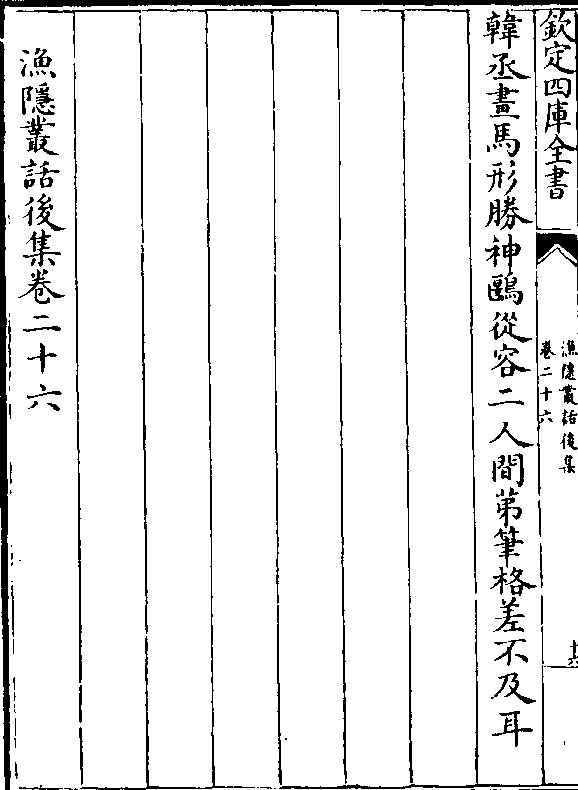 欽定四庫全書
漁隱叢話後集
卷二十六
韓丞畫馬形勝神鷗從容二人間苐筆格差不及耳
漁隱叢話後集卷二十六